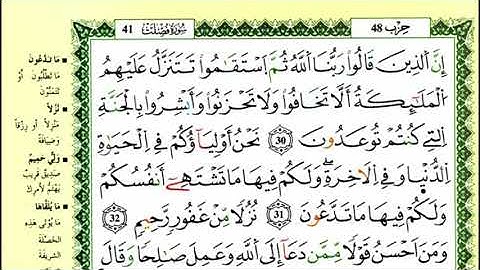 حزب 48
سورة فصلت 41
إِنَّ ٱلَّذِينَ قَالُوا۟ رَبُّنَا ٱللَّهُ ثُمَّ ٱسْتَقَٰمُوا۟ تَتَنَزَّلُ عَلَيْهِمُ
ٱلْمَلَٰٓئِكَةُ أَلَّا تَخَافُوا۟ وَلَا تَحْزَنُوا۟ وَأَبْشِرُوا۟ بِالْجَنَّةِ
ٱلَّتِے كُنتُمْ تُوعَدُونَ 30 نَحْنُ أَوْلِيَآؤُكُمْ فِے ٱلْحَيَوٰةِ
ٱلدُّنْيَا وَفِے ٱلَاخِرَةِ وَلَكُمْ فِيهَا مَا تَشْتَهِےٓ أَنفُسُكُمْ
وَلَكُمْ فِيهَا مَا تَدَّعُونَ 31 نُزُلًا مِّنْ غَفُورٍ رَّحِيمٍ 32
وَمَنَ اَحْسَنُ قَوْلًا مِّمَّن دَعَآ إِلَى ٱللَّهِ وَعَمِلَ صَٰلِحًا وَقَالَ
مَا تَدَّعُونَ
مَا تَطْلُبُونَ أَوْ
تَتَمَنَّوْنَ
نُزُلًا
مَنْزِلًا أو رِزْقًا
وَضِيَافَةً
وَلِيٌّ حَمِيمٌ
صَدِيقٌ قَرِيبٌ
يَهْتَمُّ لأَمْرِكَ
مَا يُلَقَّاهَا
مَا يُؤْتَى هَذِهِ
الخَصْلَةَ
الشَّرِيفَةَ